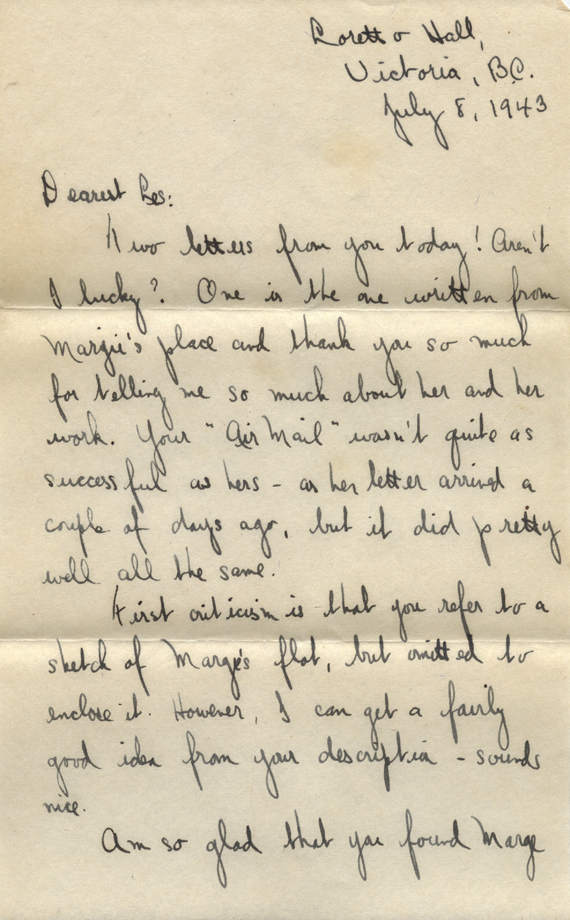 Loretto Hall,
Victoria, B.C.
July 8, 1943
Dearest Les:
Two letters from you today! Aren't
I lucky? One is the one written from
Margie's place and thank you so much
for telling me so much about her and her
work. Your "Air Mail" wasn't quite as
successful as hers - as her letter arrived a
couple of days ago, but it did pretty
well all the same.
First criticism is that you refer to a
sketch of Marge's flat, but omitted to
enclose it. However, I can get a fairly
good idea from your description - sounds
nice.
Am so glad that you found Marge